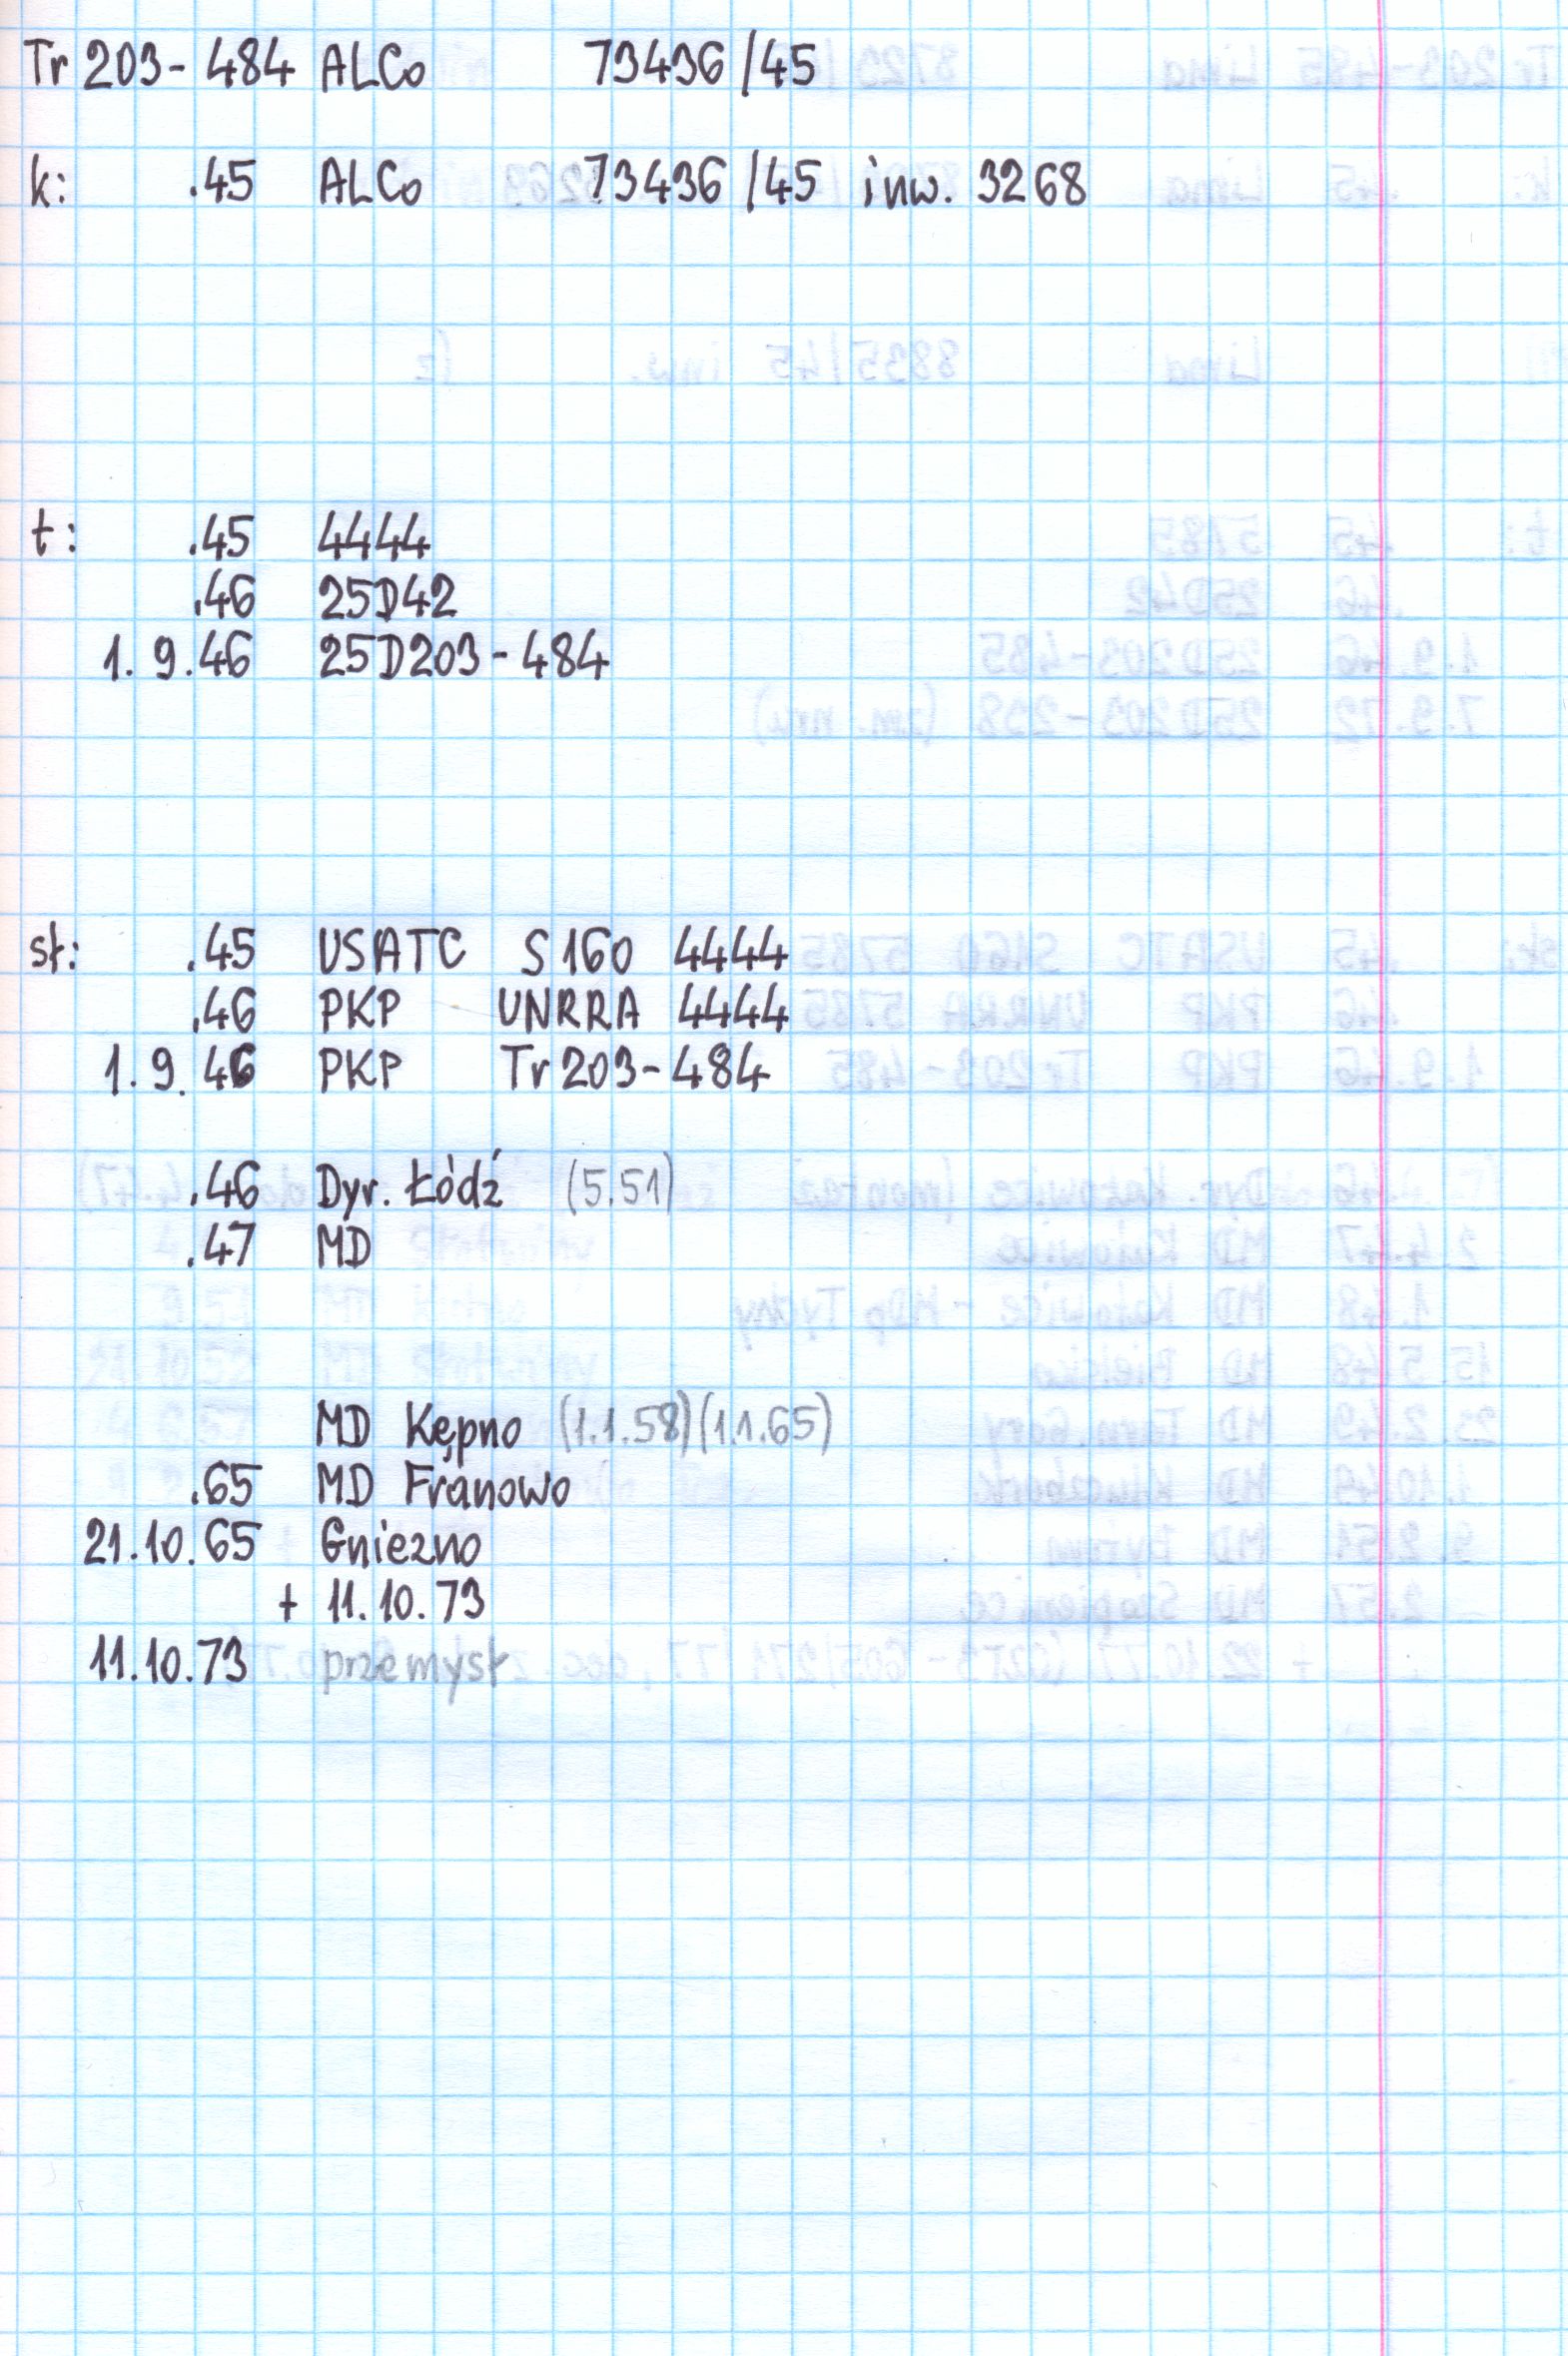 Tr 203-484 ALCo 73436/45
k: .45 ALCo 73436/45 inw. 3268
t: .45 4444
.46 25D42
1.9.46 25D203-484
sł: .45 USATC S160 4444
.46 PKP UNRRA 4444
1.9.46 PKP Tr203-484
.46 Dyr. Łódź (5.51)
.47 MD
MD Kępno (1.1.58)(1.1.65)
.65 MD Franowo
21.10.65 Gniezno
+ 11.10.73
11.10.73 przemysł